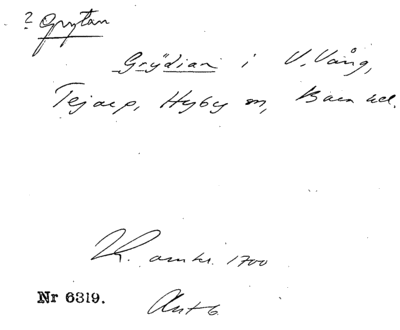 ? Grytan
Grÿdian i V. Vång,
Tejarp, Hyby sn, Bara hd.
omkr. 1700
Nr 6319.